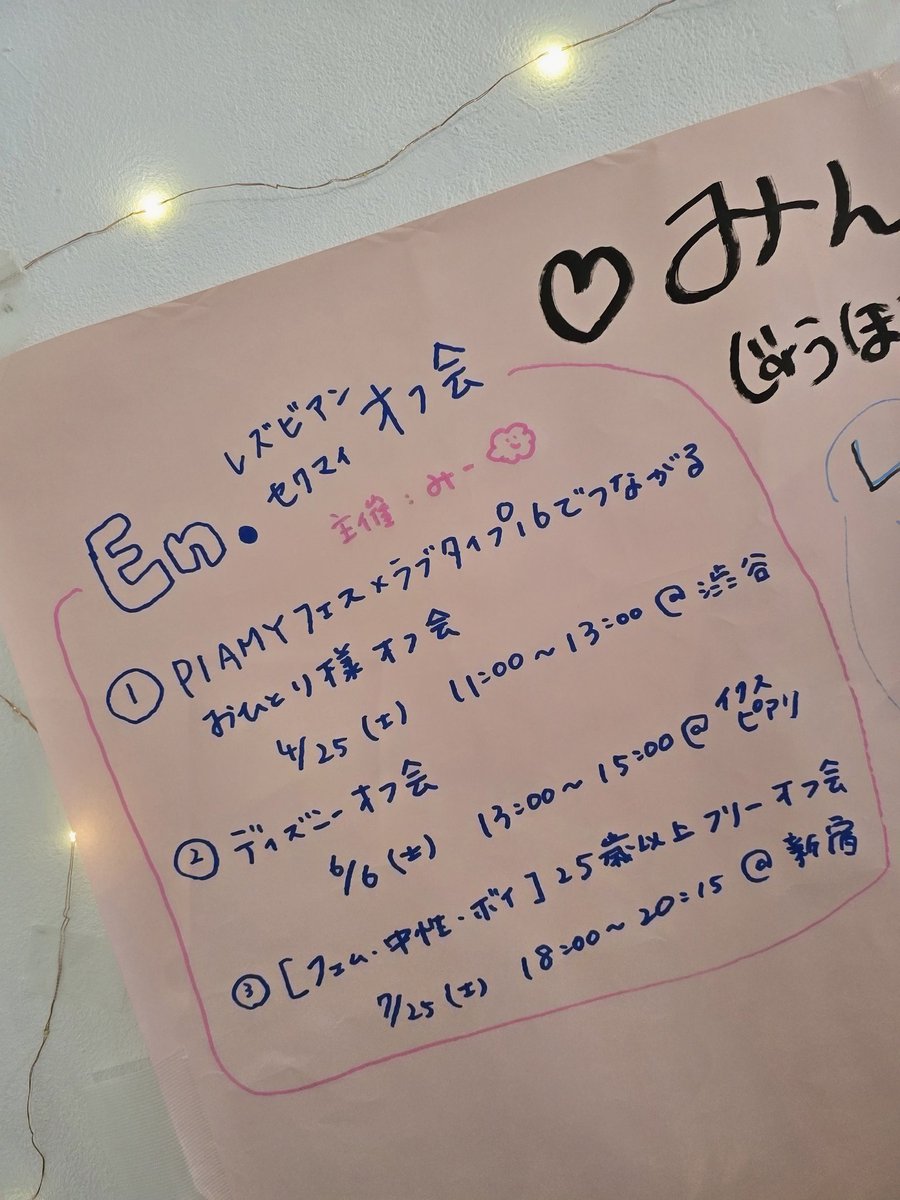 ♡みん
じょうほ
レズビアン
セクマイ オフ会
En.
主催：みー
① PIAMYフェス×ラブタイプ16でつながる
おひとり様オフ会
4/25(土) 11:00～13:00 @ 渋谷
② ディズニーオフ会
6/6(土) 13:00～15:00 @ イクス
ピアリ
③ [フェム・中性・ボイ] 25歳以上フリーオフ会
7/25(土) 18:00～20:15 @ 新宿